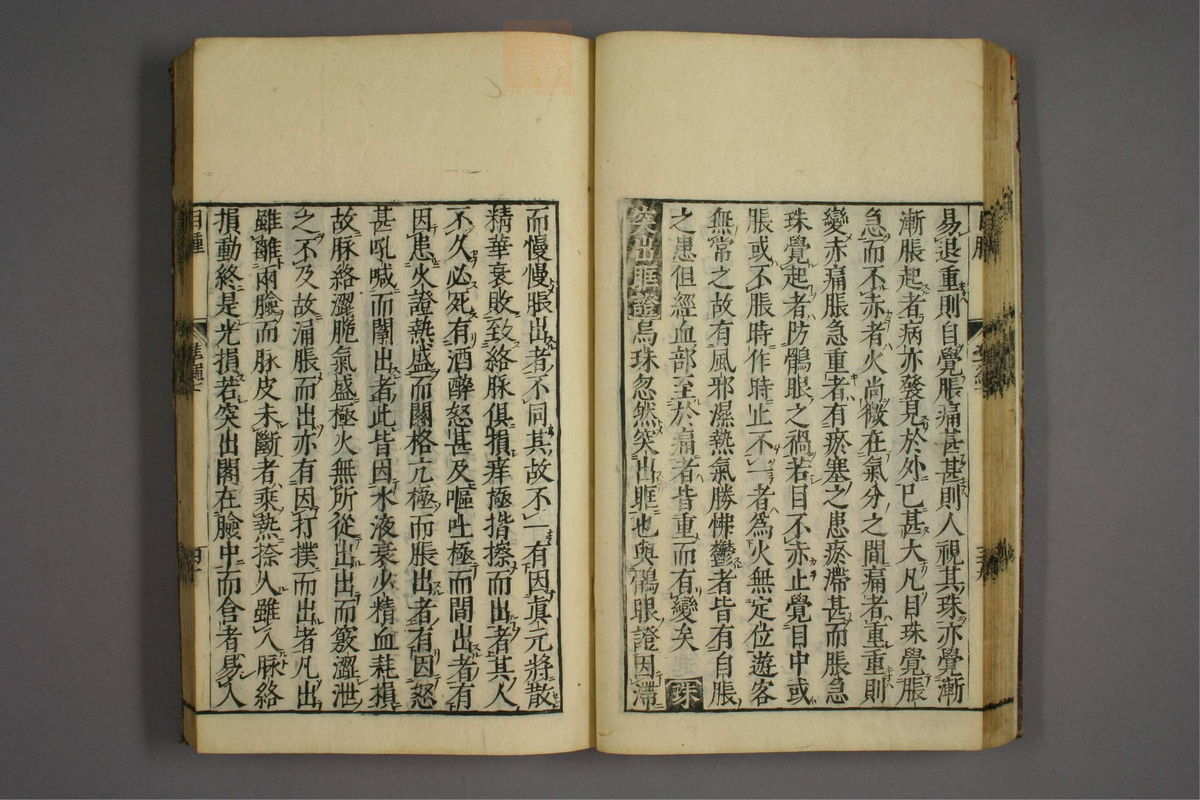 易退重則自覺脹痛甚甚則人視其珠亦覺漸
漸脹起者病亦發見於外已甚大凡目珠覺脹
急而不赤者火尚微在氣分之間痛者重重則
變赤痛脹急重者有瘀塞之患瘀滯甚而脹急
珠覺起者防鶻眼之禍若目不赤止覺目中或
脹或不脹時作時止不一者爲火無定位遊客
無常之故有風邪濕熱氣勝怫鬱者皆有自脹
之患但經血部至於痛者皆重而有變矣 珠
突出眶證烏珠忽然突出眶也與鶻眼證因滯
而慢慢脹出者不同其故不一有因眞元將散
精華衰敗致絡脉俱損痒極揩擦而出者其人
不久必死有酒醉怒甚及嘔吐極而間出者有
因患火證熱盛而關格亢極而脹出者有因怒
甚吼喊而閣出者此皆因水液衰少精血耗損
故脉絡澀脆氣盛極火無所從出出而竅澀泄
之不及故涌脹而出亦有因打撲而出者凡出
雖離兩臉而脉皮未斷者乘熱捺入雖入脉絡
損動終是光損若突出閣在臉中而含者易入
目腫